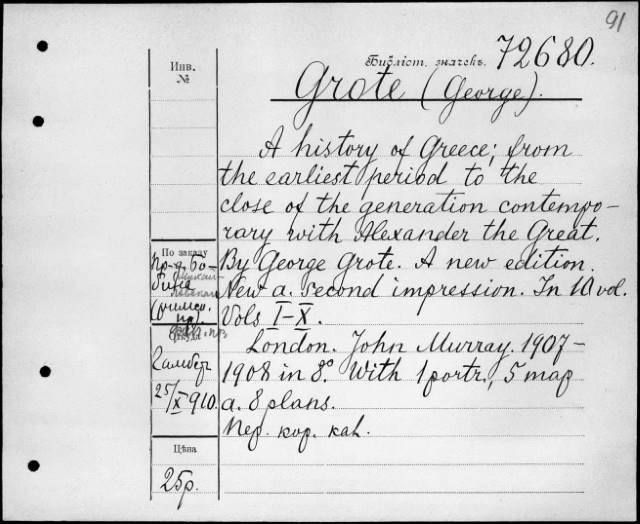 91
Библіот. значекъ. 72680.
Инв.
№
Grote (George).
A history of Greece; from
the earliest period to the
close of the generation contempo-
rary with Alexander the Great.
By George Grote. A new edition.
New a. second impression. In 10 vol.
Vols I-X.
London. John Murray. 1907-
1908 in 8°. With 1 portr., 5 map
a. 8 plans.
Пер. кор. кал.
По заказу
Откуда
25/X 910.
Цѣна
25р.